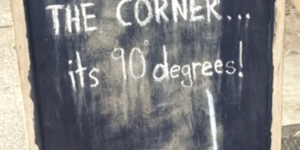 THE CORNER...
its 90° degrees!